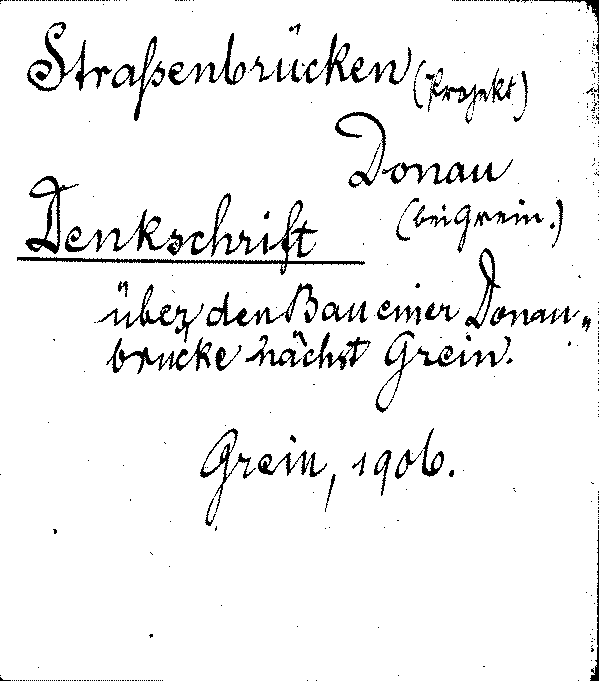 Straßenbrücken (Projekt)
Donau
(bei Grein.)
Denkschrift
über den Bau einer Donau-
brücke nächst Grein.
Grein, 1906.